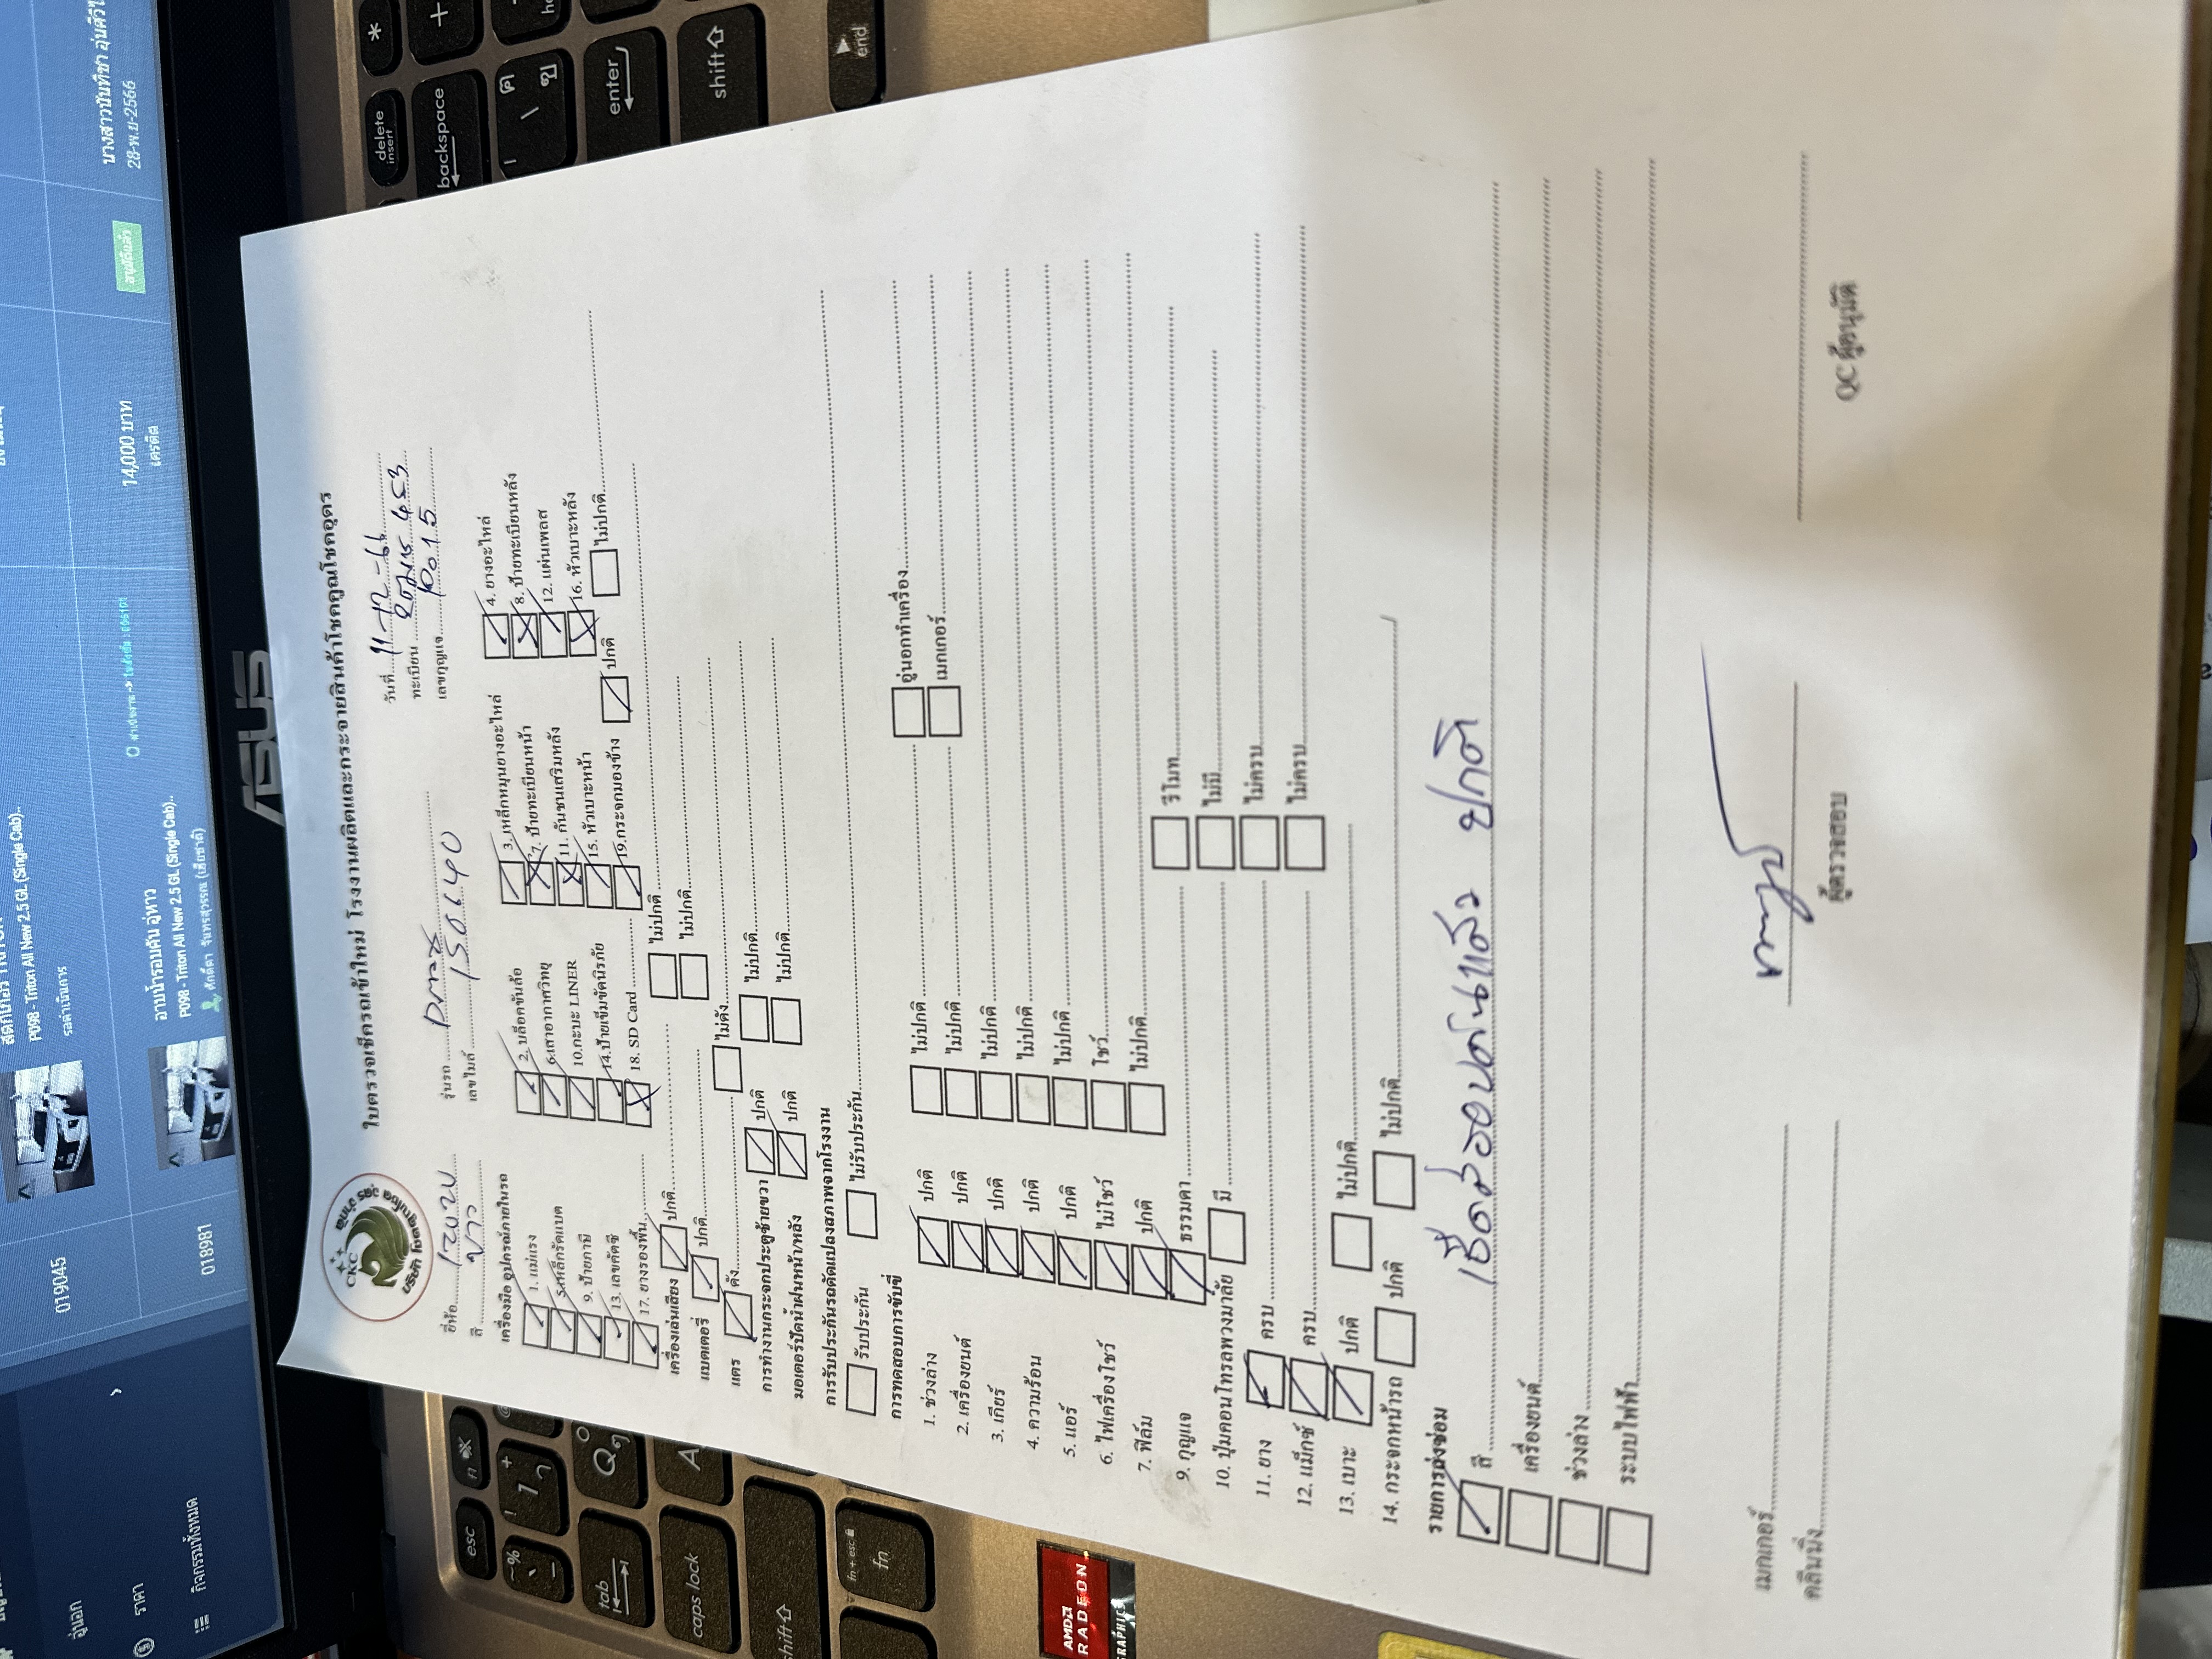 CKC
บริษัท โชคคูณโชค อุดร จำกัด
ใบตรวจเช็กรถเข้าใหม่ โรงงานผลิตและกระจายสินค้าโชคคูณโชคอุดร
วันที่ 11-12-66
ยี่ห้อ รุ่นรถ Dmax ทะเบียน 453
สี ขาว เลขไมล์ 150640 เลขกุญแจ
เครื่องมือ อุปกรณ์ภายในรถ
1. แม่แรง 2. บล็อคขันล้อ 3. เหล็กหมุนยางอะไหล่ 4. ยางอะไหล่
5. เหล็กรัดแบต 6. เสาอากาศวิทยุ 7. ป้ายทะเบียนหน้า 8. ป้ายทะเบียนหลัง
9. ป้ายภาษี 10. กะบะ LINER 11. กันชนเสริมหลัง 12. แผ่นเพลส
13. เลขคัตซี 14. ป้ายเข็มขัดนิรภัย 15. หัวเบาะหน้า 16. หัวเบาะหลัง
17. ยางรองพื้น 18. SD Card 19. กระจกมองข้าง ปกติ ไม่ปกติ
เครื่องเล่นเสียง ปกติ ไม่ปกติ
แบตเตอรี่ ปกติ ไม่ปกติ
แตร ดัง ไม่ดัง
การทำงานกระจกประตูซ้ายขวา ปกติ ไม่ปกติ
มอเตอร์ปัดน้ำฝนหน้า/หลัง ปกติ ไม่ปกติ
การรับประกันรถดัดแปลงสภาพจากโรงงาน
รับประกัน ไม่รับประกัน
การทดสอบการขับขี่
1. ช่วงล่าง ปกติ ไม่ปกติ อู่นอกทำเครื่อง
2. เครื่องยนต์ ปกติ ไม่ปกติ เมกเกอร์
3. เกียร์ ปกติ ไม่ปกติ
4. ความร้อน ปกติ ไม่ปกติ
5. แอร์ ปกติ ไม่ปกติ
6. ไฟเครื่องโชว์ ไม่โชว์ โชว์
7. ฟิล์ม ปกติ ไม่ปกติ
9. กุญแจ ธรรมดา รีโมท
10. ปุ่มคอนโทรลพวงมาลัย มี ไม่มี
11. ยาง ครบ ไม่ครบ
12. แม็กซ์ ครบ ไม่ครบ
13. เบาะ ปกติ ไม่ปกติ
14. กระจกหน้ารถ ปกติ ไม่ปกติ
รายการส่งซ่อม
สี ปกติ
เครื่องยนต์
ช่วงล่าง
ระบบไฟฟ้า
เมกเกอร์
คลีนนิ่ง
ผู้ตรวจสอบ
QC ผู้อนุมัติ
ASUS
019045
P098 - Triton All New 2.5 GL (Single Cab)..
รอดำเนินการ
018981
อาบน้ำรอบคัน อู่หาว
P098 - Triton All New 2.5 GL (Single Cab)..
14,000 บาท
เครดิต
อนุมัติแล้ว
28-พ.ย-2566
อู่นอก
ราคา
กิจกรรมทั้งหมด
esc
tab
caps lock
fn
fn + esc
delete
insert
backspace
enter
shift
end
AMD
RADEON
GRAPHICS